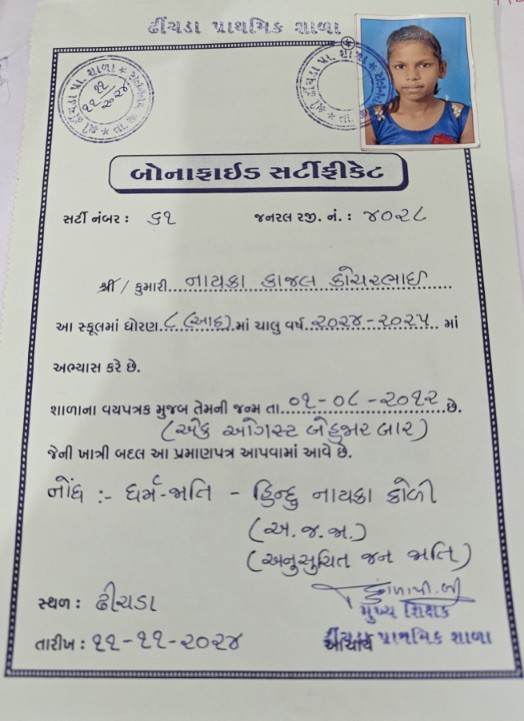 ઢીંચડા પ્રાથમિક શાળા
૧૧/૧૧/૨૦૨૪
બોનાફાઈડ સર્ટીફીકેટ
સર્ટી નંબર : ૬૧ જનરલ રજી. નં. : ૪૦૨૮
શ્રી / કુમારી નાયકા કાજલ કોચરભાઈ
આ સ્કૂલમાં ધોરણ ૮ (આઠ) માં ચાલુ વર્ષ ૨૦૨૪-૨૦૨૫ માં
અભ્યાસ કરે છે.
શાળાના વયપત્રક મુજબ તેમની જન્મ તા. ૦૧-૦૮-૨૦૧૨ છે.
(એક ઓગસ્ટ બેહજાર બાર)
જેની ખાત્રી બદલ આ પ્રમાણપત્ર આપવામાં આવે છે.
નોંધ :- ધર્મ-જાતિ - હિન્દુ નાયકા કોળી
(અ.જ.જા.)
(અનુસુચિત જન જાતિ)
સ્થળ : ઢીચડા
મુખ્ય શિક્ષક
તારીખ : ૧૧-૧૧-૨૦૨૪ આચાર્ય
ઢીંચડા પ્રાથમિક શાળા